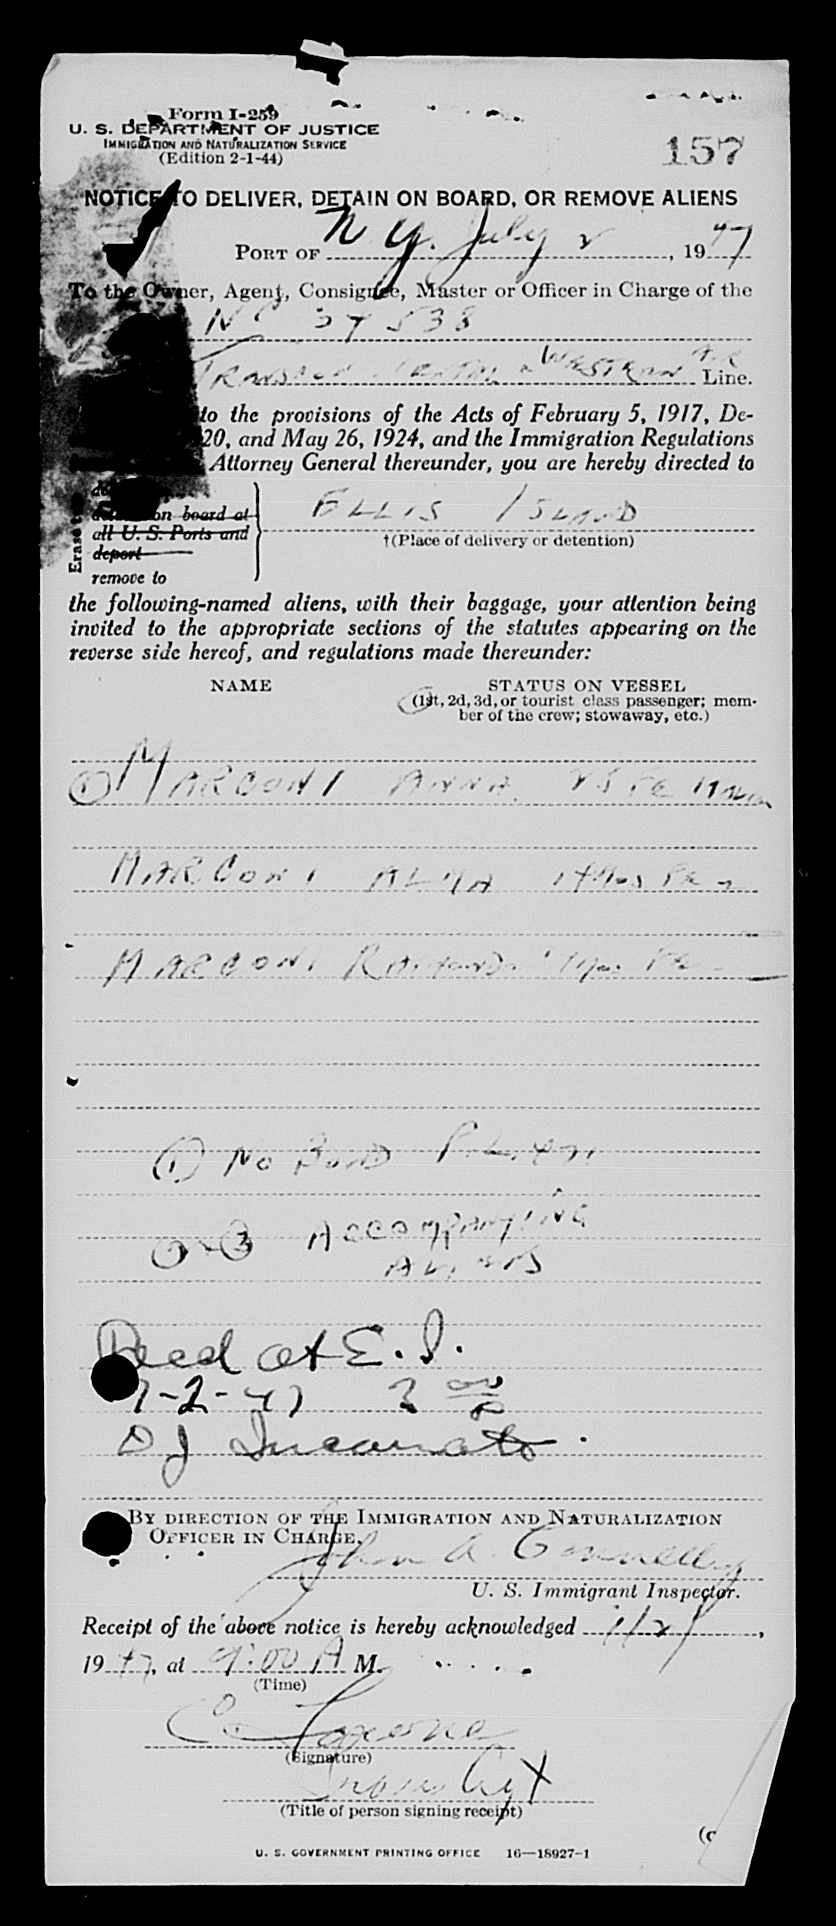 Form I-259
U. S. DEPARTMENT OF JUSTICE
IMMIGRATION AND NATURALIZATION SERVICE
(Edition 2-1-44)
157
NOTICE TO DELIVER, DETAIN ON BOARD, OR REMOVE ALIENS
PORT OF N. Y. July 2, 1947
To the Owner, Agent, Consignee, Master or Officer in Charge of the
NC
Western Air Line.
to the provisions of the Acts of February 5, 1917, De-
20, and May 26, 1924, and the Immigration Regulations
Attorney General thereunder, you are hereby directed to
on board at
ELLIS ISLAND
all U. S. Ports and
†(Place of delivery or detention)
deport
remove to
the following-named aliens, with their baggage, your attention being
invited to the appropriate sections of the statutes appearing on the
reverse side hereof, and regulations made thereunder:
NAME
STATUS ON VESSEL
(1st, 2d, 3d, or tourist class passenger; mem-
ber of the crew; stowaway, etc.)
① MARCONI ANNA
MARCONI
MARCONI
① No BOND
ACCOMPANYING
ALIENS
Recd at E. I.
7-2-47
D J Incarnato
BY DIRECTION OF THE IMMIGRATION AND NATURALIZATION
OFFICER IN CHARGE.
John A. Connelley
U. S. Immigrant Inspector.
Receipt of the above notice is hereby acknowledged 7/2,
1947, at 9:00 A M.
(Time)
C.
(Signature)
Agt
(Title of person signing receipt)
U. S. GOVERNMENT PRINTING OFFICE 16—18927-1